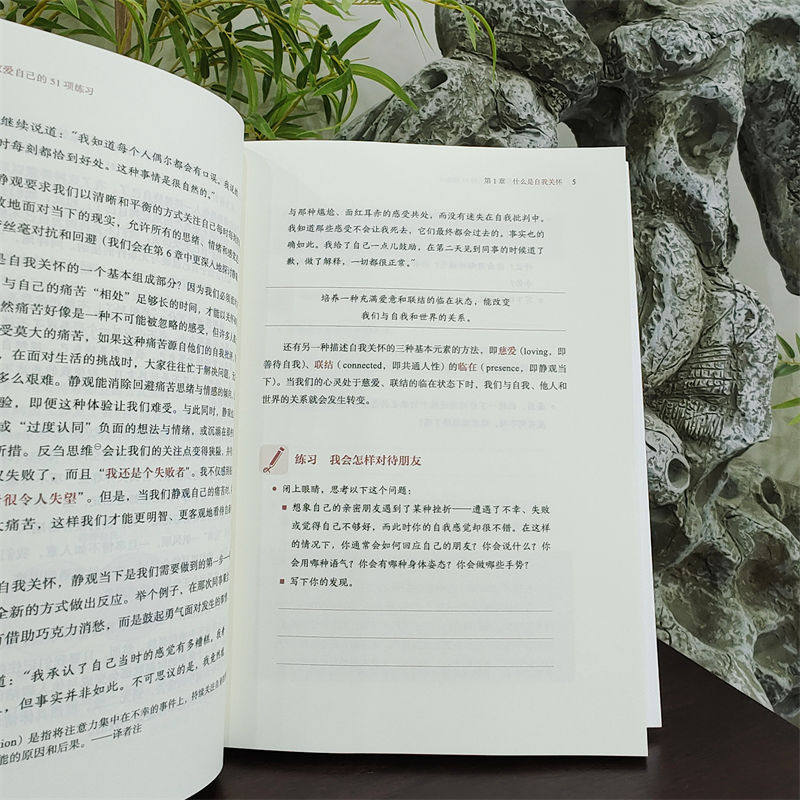 爱自己的 51 项练习
继续说道：“我知道每个人偶尔都会有口误，我说的
时每刻都恰到好处。这种事情是很自然的。”
静观要求我们以清晰和平衡的方式关注自己每时每刻的
放地面对当下的现实，允许所有的思绪、情绪和感觉
丝毫对抗和回避（我们会在第 6 章中更深入地探讨静观
是自我关怀的一个基本组成部分？因为我们必须
与自己的痛苦“相处”足够长的时间，才能以关怀
然痛苦好像是一种不可能被忽略的感受，但许多人
受莫大的痛苦，如果这种痛苦源自他们的自我批评
，在面对生活的挑战时，大家往往忙于解决问题，
多么艰难。静观能消除回避痛苦思绪与情感的倾向，
验，即便这种体验让我们难受。与此同时，静观
或“过度认同”负面的想法与情绪，或沉溺在那
折措。反刍思维⊖会让我们的关注点变得狭隘，并
又失败了，而且“我还是个失败者”。我不仅感到
很令人失望”。但是，当我们静观自己的痛苦时，
大痛苦，这样我们才能更明智、更客观地看待自己
自我关怀，静观当下是我们需要做到的第一步——
全新的方式做出反应。举个例子，在那次同事聚会
有借助巧克力消愁，而是鼓起勇气面对发生的事情
道：“我承认了自己当时的感觉有多糟糕，我希
，但事实并非如此。不可思议的是，我竟然能
tion）是指将注意力集中在不幸的事件上，持续关注自
能的原因和后果。——译者注
第 1 章 什么是自我关怀 5
与那种尴尬、面红耳赤的感受共处，而没有迷失在自我批判中。
我知道那些感受不会让我死去，它们最终都会过去的。事实也的
确如此。我给了自己一点儿鼓励，在第二天见到同事的时候道了
歉，做了解释，一切都很正常。”
培养一种充满爱意和联结的临在状态，能改变
我们与自我和世界的关系。
还有另一种描述自我关怀的三种基本元素的方法，即慈爱（loving，即
善待自我）、联结（connected，即共通人性）的临在（presence，即静观当
下）。当我们的心灵处于慈爱、联结的临在状态下时，我们与自我、他人和
世界的关系就会发生转变。
练习 我会怎样对待朋友
闭上眼睛，思考以下这个问题：
想象自己的亲密朋友遇到了某种挫折——遭遇了不幸、失败
或觉得自己不够好，而此时你的自我感觉却很不错。在这样
的情况下，你通常会如何回应自己的朋友？你会说什么？你
会用哪种语气？你会有哪种身体姿态？你会做哪些手势？
写下你的发现。